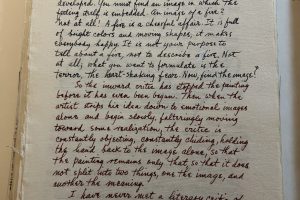 developed. You must find an image in which the
feeling itself is embedded. An image of a fire?
Not at all! A fire is a cheerful affair. It is full
of bright colors and moving shapes; it makes
everybody happy. It is not your purpose to
tell about a fire, not to describe a fire. Not
at all; what you want to formulate is the
terror, the heart-shaking fear. Now, find the image!
So the inward critic has stopped the painting
before it has even been begun. Then, when the
artist strips his idea down to emotional images
alone and begins slowly, falteringly moving
toward some realization, the critic is
constantly objecting, constantly chiding, holding
the hand back to the image alone, so that
the painting remains only that, so that it does
not split into two things, one the image, and
another the meaning.
I have never met a literary critic of